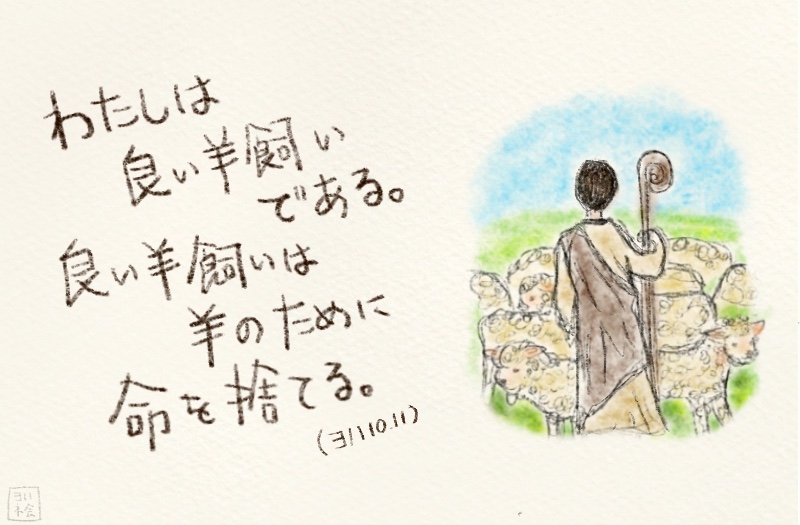 わたしは
良い羊飼い
である。
良い羊飼いは
羊のために
命を捨てる。
(ヨハ10.11)